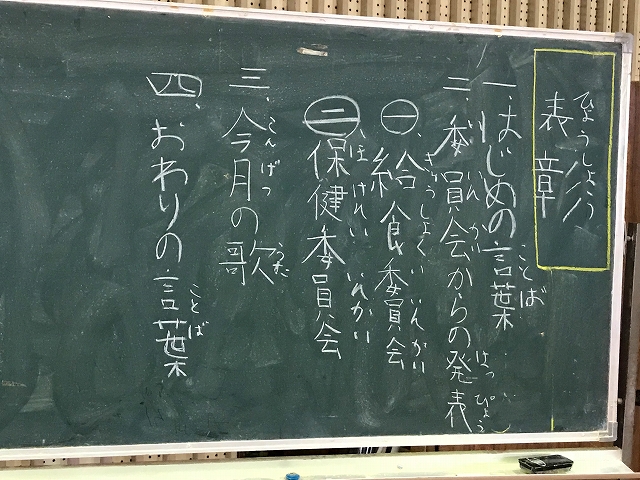 ひょうしょう
表彰
ことば
一、はじめの言葉
いいんかい はっぴょう
二、委員会からの発表
きゅうしょくいいんかい
㊀、給食委員会
ほけんいいんかい
㊁保健委員会
こんげつ うた
三、今月の歌
ことば
四、おわりの言葉